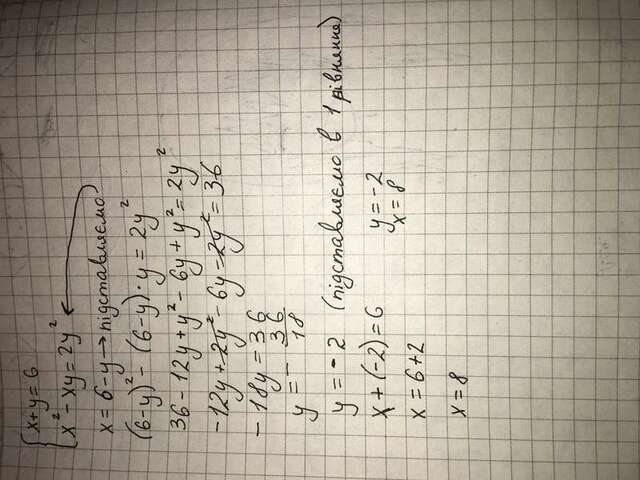 x+y=6
x²-xy=2y²
x=6-y→підставляємо
(6-y)²-(6-y)·y=2y²
36-12y+y²-6y+y²=2y²
-12y+2y²-6y-2y²=36
-18y=36
y=-36/18
y=-2 (підставляємо в 1 рівняння)
x+(-2)=6 y=-2
x=6+2 x=8
x=8